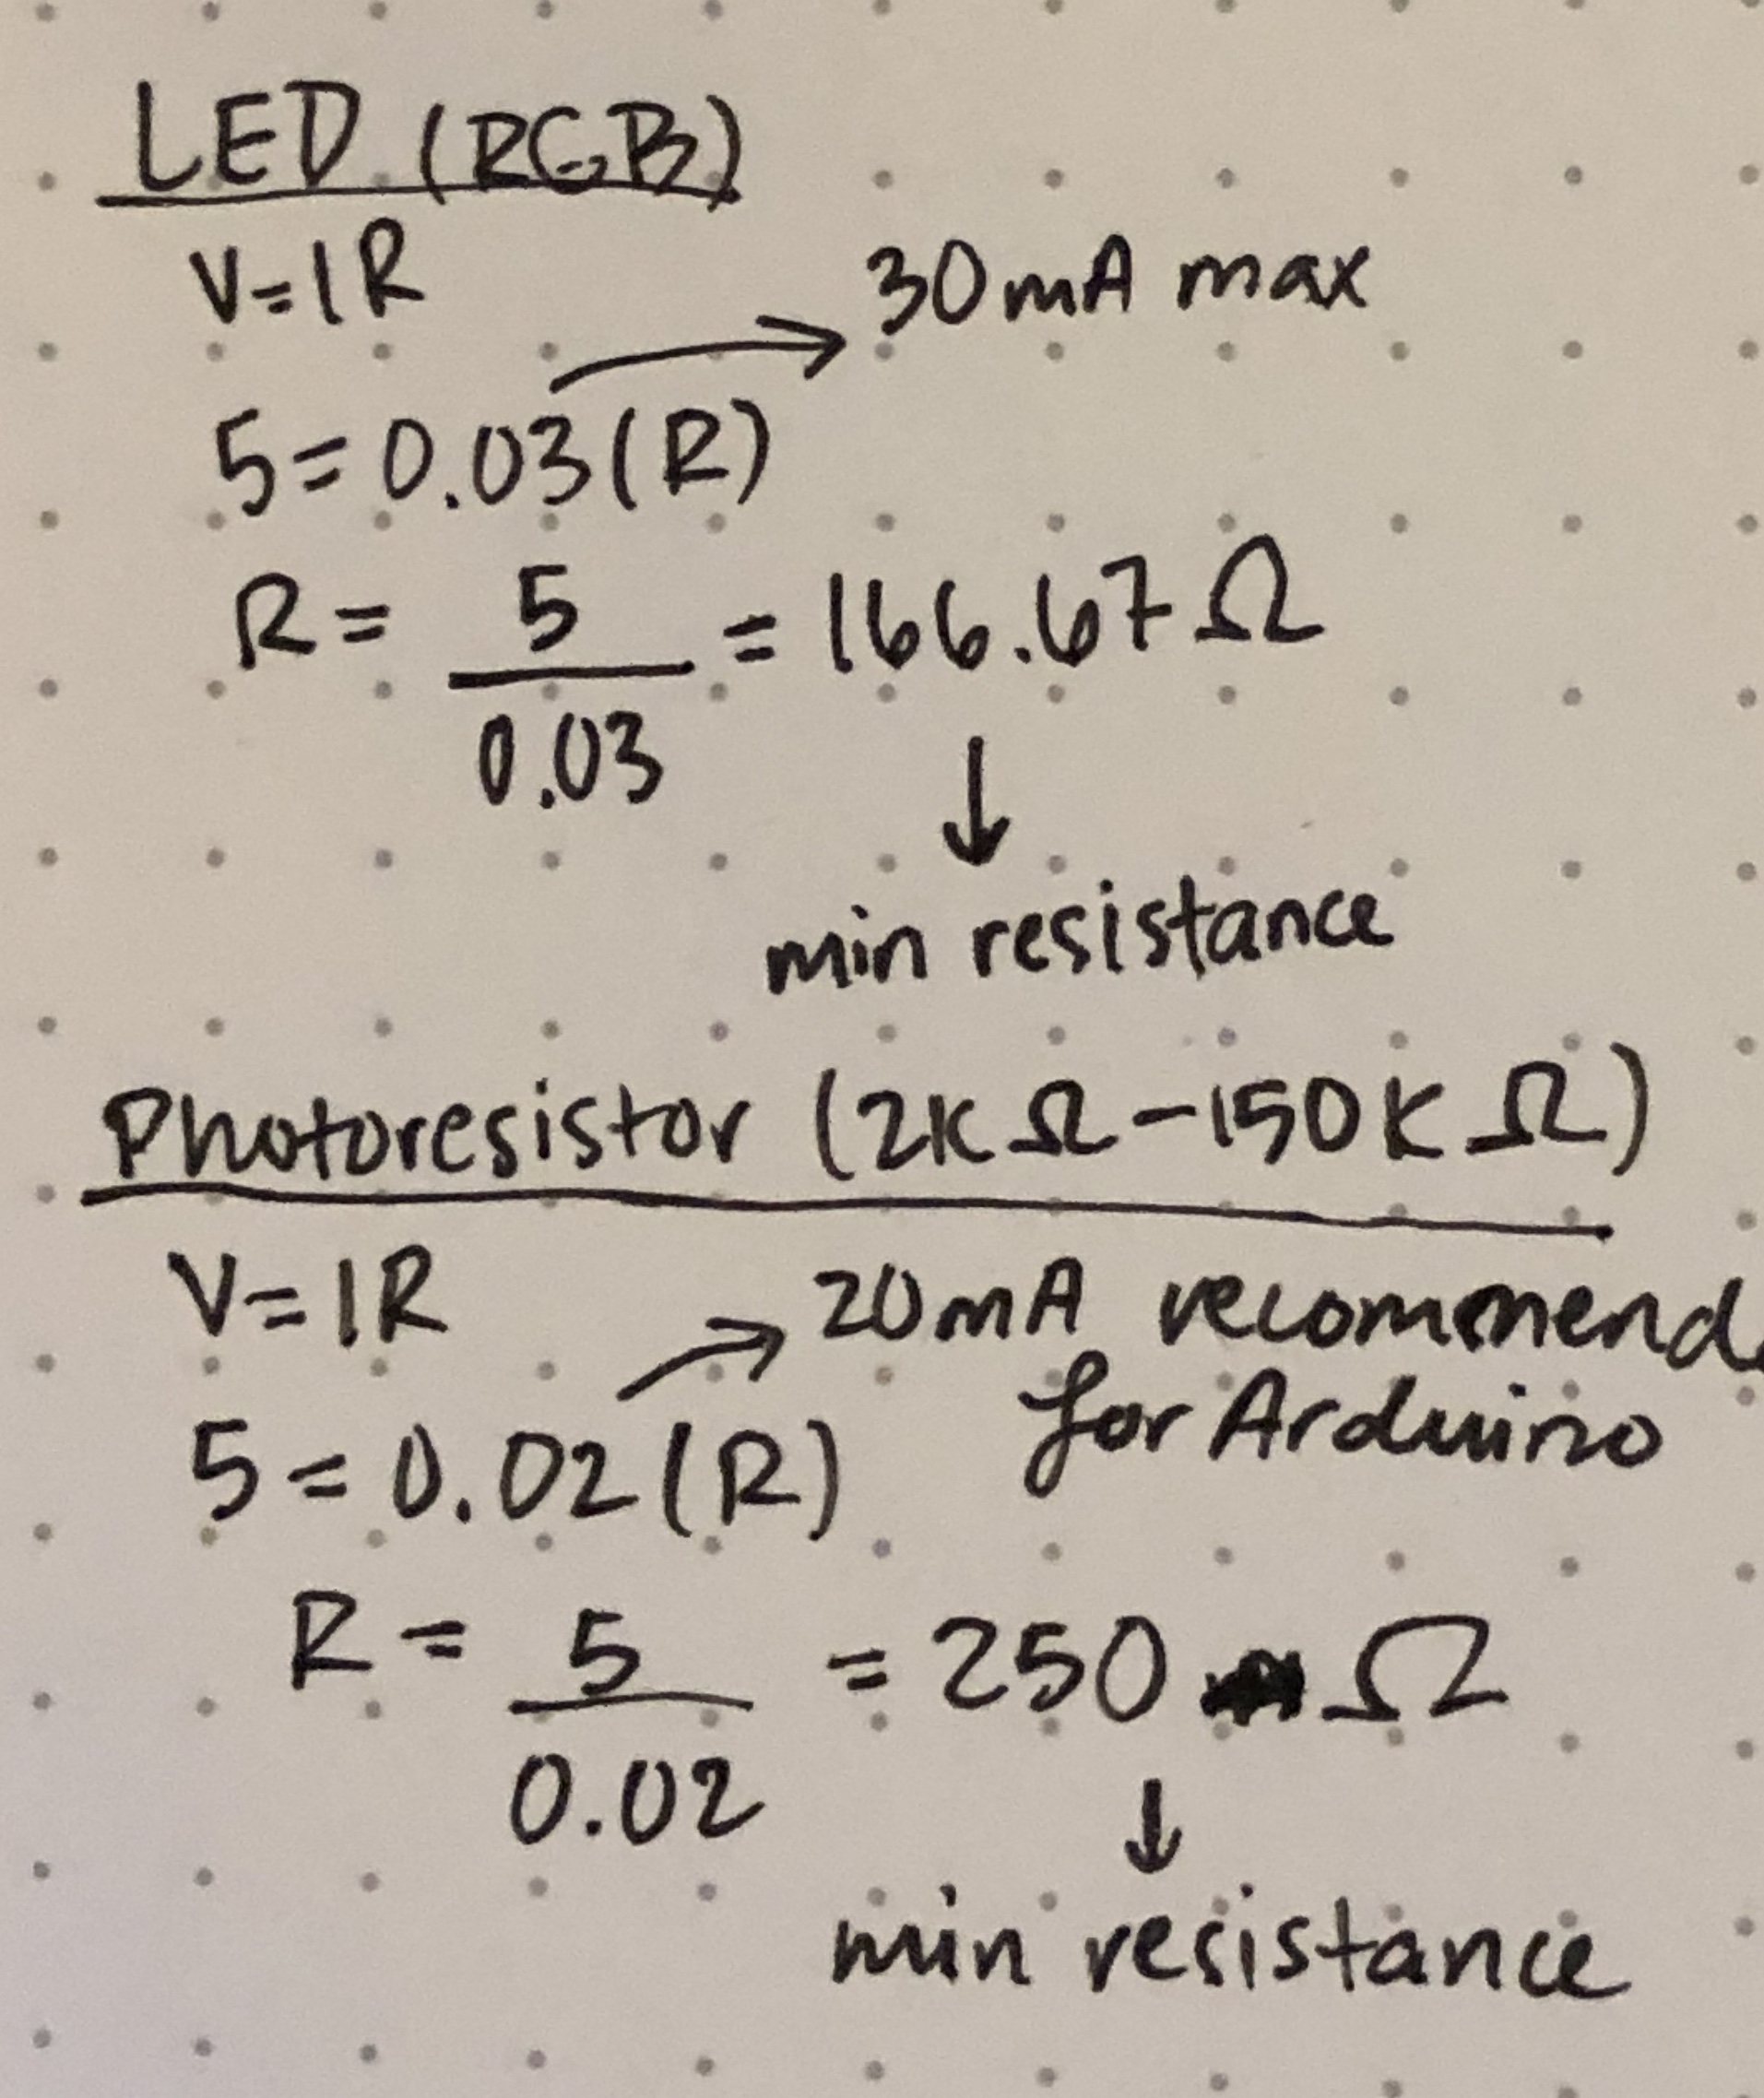 LED (RGB)
V=IR
30mA max
5=0.03(R)
R= 5/0.03 = 166.67Ω
↓
min resistance
Photoresistor (2KΩ-150KΩ)
V=IR
20mA recommend
for Arduino
5=0.02(R)
R= 5/0.02 =250 Ω
↓
min resistance